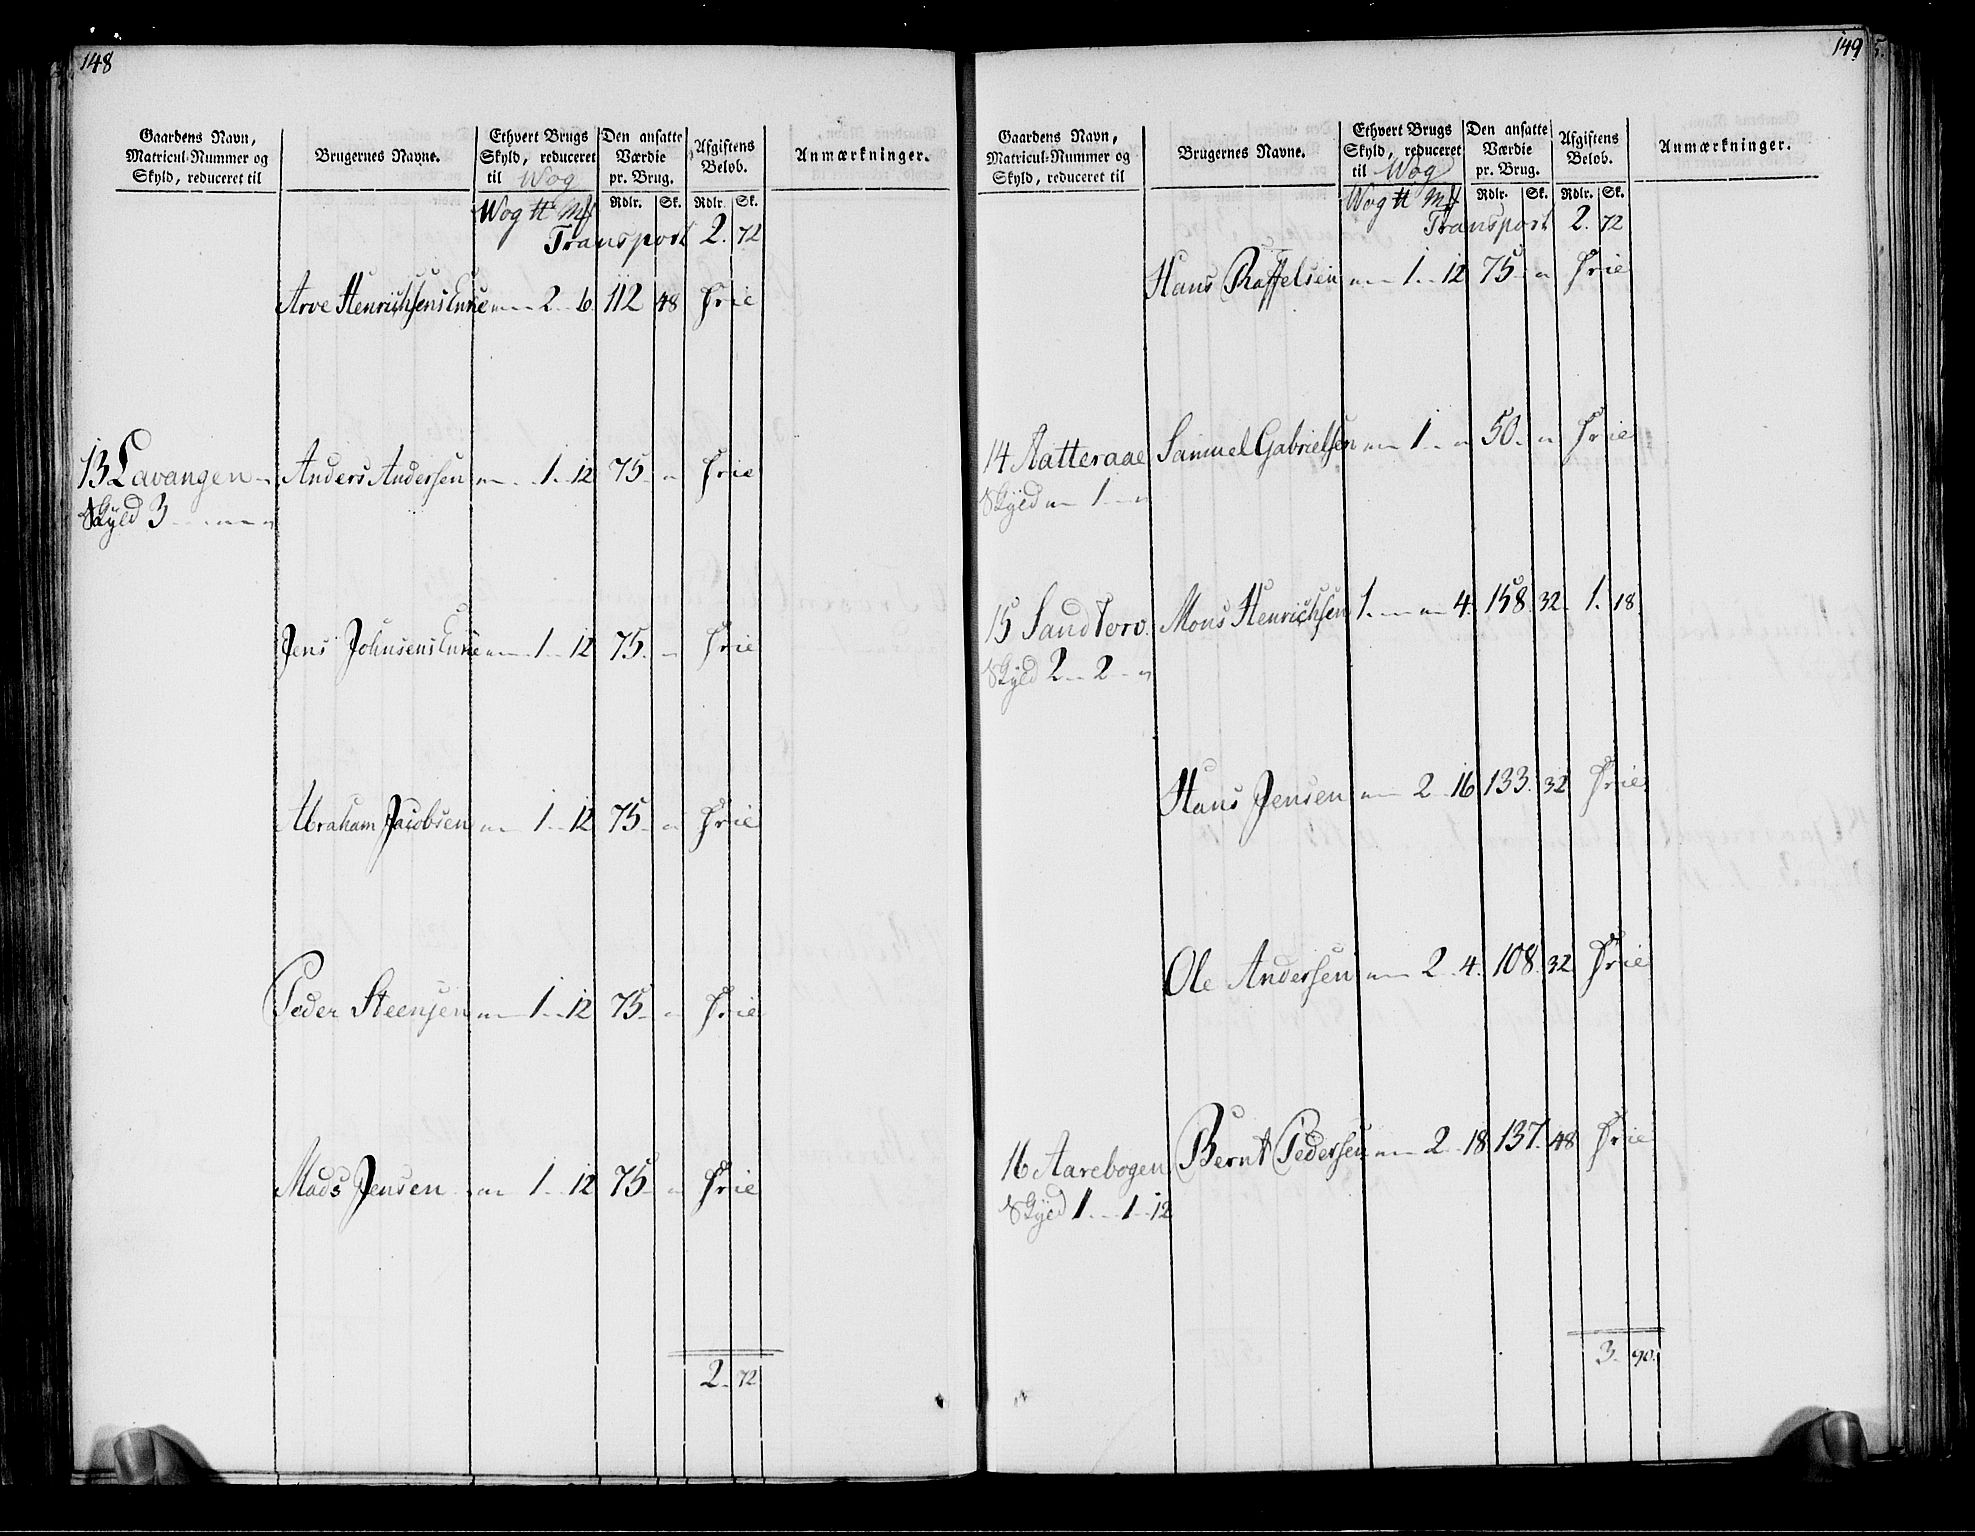 148
Gaardens Navn, Matricul-Nummer og Skyld, reduceret til
Brugernes Navne.
Ethvert Brugs Skyld, reduceret til Wog
Den ansatte Værdie pr. Brug.
Afgiftens Beløb.
Anmærkninger.
Wog ℔ Mk Rdlr. Sk. Rdlr. Sk.
Transport 2. 72
Arve Henrichsens Enke „ 2 6 112 48 Frie
13 Lavangen Anders Andersen „ 1 12 75 „ Frie
Skyld 3 „ „
Jens Johnsens Enke „ 1 12 75 „ Frie
Abraham Jacobsen „ 1 12 75 „ Frie
Peder Steensen „ 1 12 75 „ Frie
Mads Jensen „ 1 12 75 „ Frie
2. 72
149
Gaardens Navn, Matricul-Nummer og Skyld, reduceret til
Brugernes Navne.
Ethvert Brugs Skyld, reduceret til Wog
Den ansatte Værdie pr. Brug.
Afgiftens Beløb.
Anmærkninger.
Wog ℔ Mk Rdlr. Sk. Rdlr. Sk.
Transport 2. 72
Hans Raffelsen „ 1 12 75 „ Frie
14 Aatteraae Samuel Gabrielsen „ 1 „ 50 „ Frie
Skyld „ 1 „
15 Sandtorv Mons Henrichsen 1 „ 4 158 32 1. 18
Skyld 2 2 „
Hans Jensen „ 2 16 133 32 Frie
Ole Andersen „ 2 4 108 32 Frie
16 Aarebogen Bernt Pedersen „ 2 18 137 48 Frie
Skyld 1 1 12
3. 90.